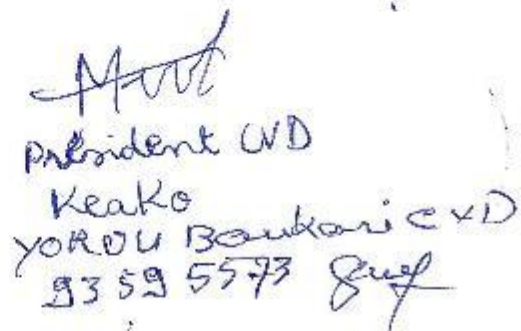 Président CVD
Keako
YOROU Boukari CVD
93 59 55 73